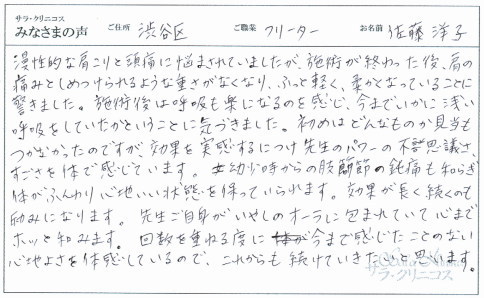 サラ・クリニコス
みなさまの声 ご住所 渋谷区 ご職業 フリーター お名前 佐藤 洋子
慢性的な肩こりと頭痛に悩まされていましたが、施術が終わった後、肩の
痛みとしめつけられるような重さがなくなり、ふっと軽く、柔かくなっていることに
驚きました。施術後は呼吸も楽になるのを感じ、今までいかに浅い
呼吸をしていたかということに気づきました。初めはどんなものか見当も
つかなかったのですが効果を実感するにつけ先生のパワーの不思議さ、
すごさを体で感じています。幼少時からの股関節の鈍痛も和らぎ
体がふんわり心地いい状態を保っていられます。効果が長く続くのも
励みになります。先生ご自身がいやしのオーラに包まれていて心まで
ホッと和みます。回数を重ねる度に今まで感じたことのない
心地よさを体感しているので、これからも続けていきたいと思います。
サラ・クリニコス